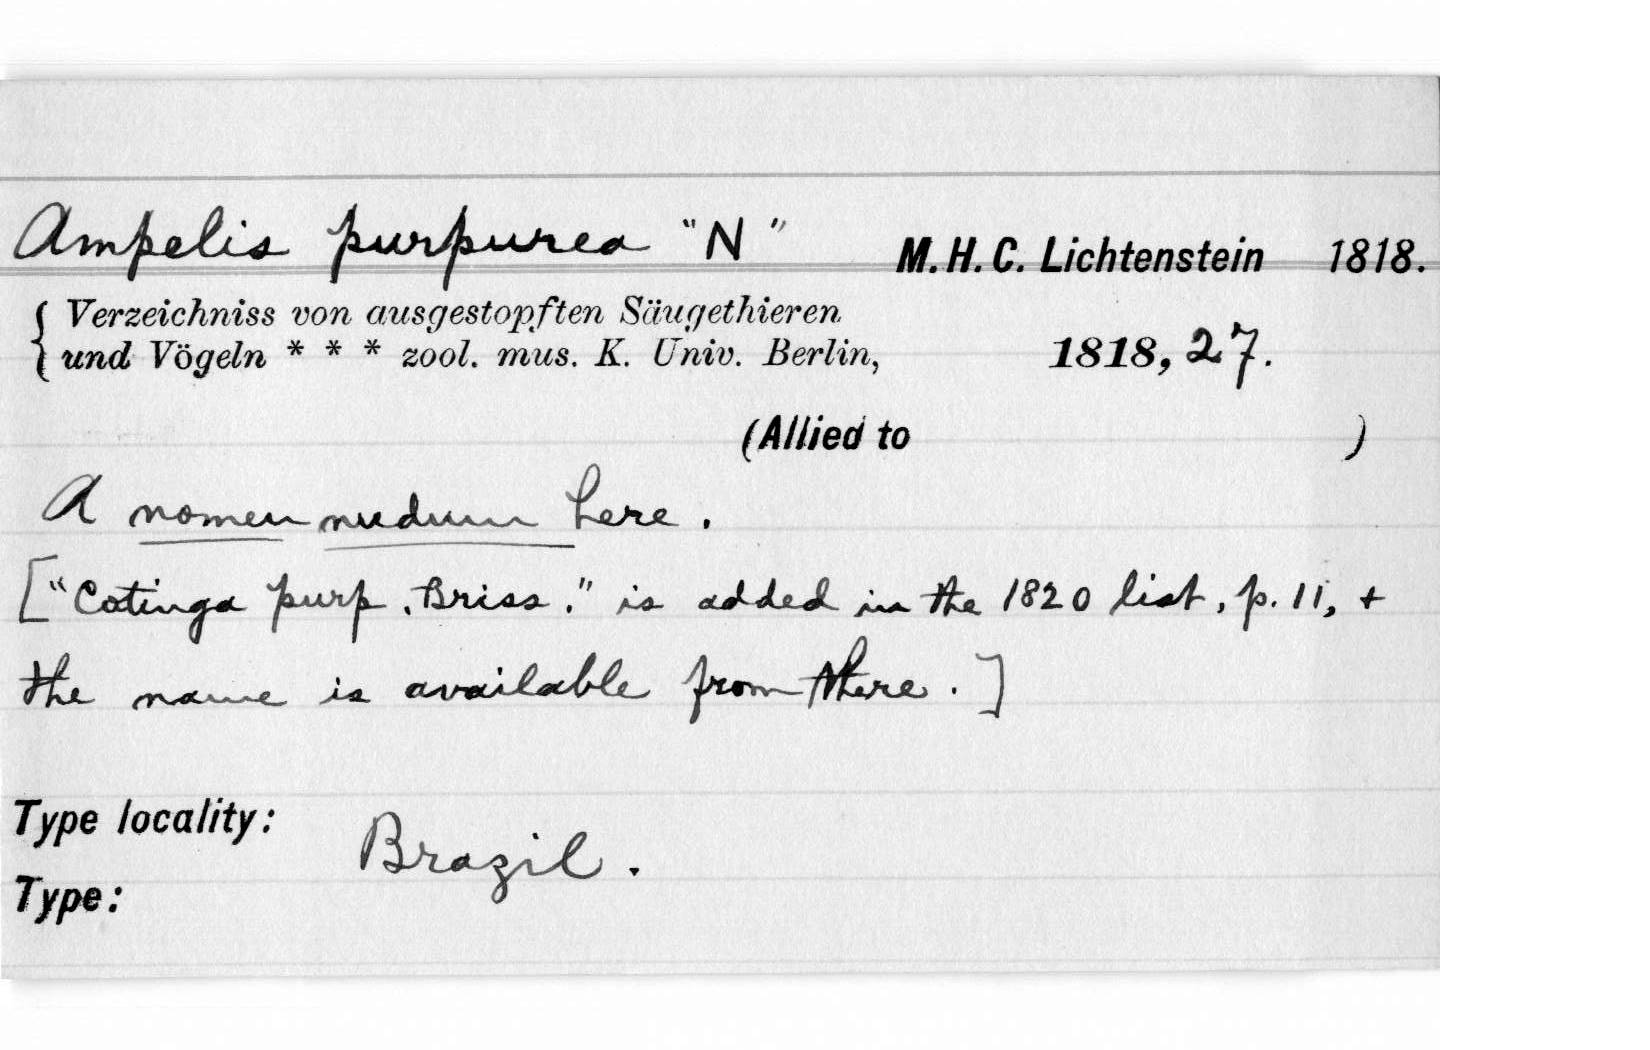 Ampelis purpurea "N" M. H. C. Lichtenstein 1818.
{ Verzeichniss von ausgestopften Säugethieren
{ und Vögeln * * * zool. mus. K. Univ. Berlin, 1818, 27.
(Allied to )
A nomen nudum here.
["Cotinga purp. Briss." is added in the 1820 list, p. 11, +
the name is available from there.]
Type locality:
Brazil.
Type: